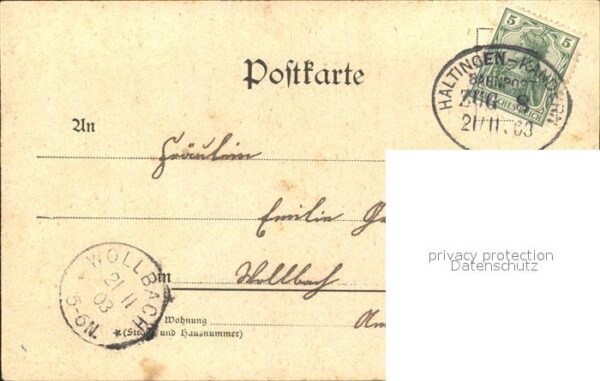 5 5
REICH
Postkarte
HALTINGEN-KANDERN
BAHNPOST
ZUG 8
21/11.03
An
Fräulein
Emilie
privacy protection
Datenschutz
WOLLBACH
21 11
03
5-6N.
in Wollbach
Wohnung
(Straße und Hausnummer)